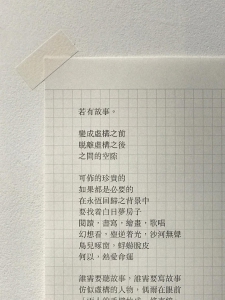 若有故事。
變成虛構之前
脫離虛構之後
之間的空隙
可佈的珍貴的
如果都是必要的
在永恆回歸之背景中
要找着白日夢房子
閱讀，書寫，繪畫，歌唱
幻想看，鹿逆着光，沙河無聲
鳥兒啄窗，蜉蝣脫皮
何以，熱愛命運
誰需要聽故事，誰需要寫故事
仿似虛構的人物，偶爾在眼前